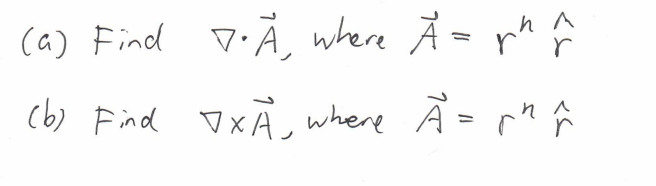 (a) Find ∇·A⃗, where A⃗ = rⁿ r̂
(b) Find ∇×A⃗, where A⃗ = rⁿ r̂